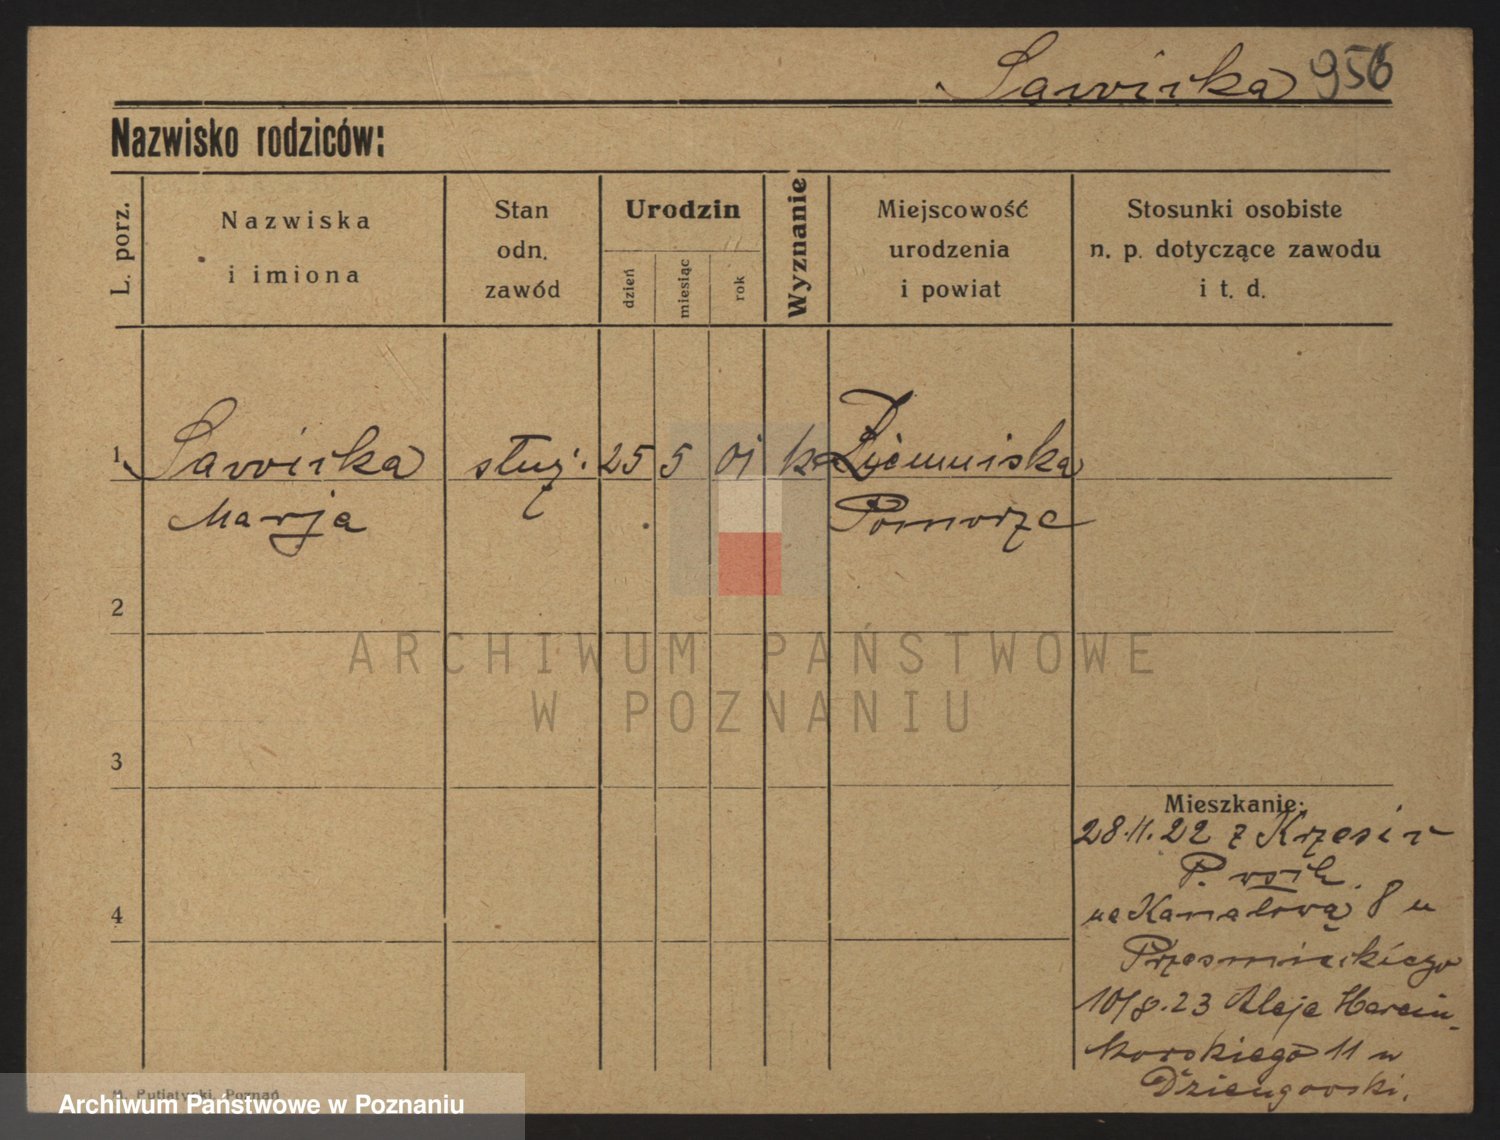 Sawicka 956
Nazwisko rodziców:
L. porz.
Nazwiska
i imiona
Stan
odn.
zawód
Urodzin
dzień
miesiąc
rok
Wyznanie
Miejscowość
urodzenia
i powiat
Stosunki osobiste
n. p. dotyczące zawodu
i t. d.
1 Sawicka służ. 25 5 01 k
Marja Pomorze
2
ARCHIWUM PAŃSTWOWE
W POZNANIU
3
Mieszkanie:
28.11.22 z Krzesin
P.
na Kanałową 8 u
10/8.23 Aleje Marcin-
kowskiego 11 u
M. Putiatycki, Poznań
Archiwum Państwowe w Poznaniu
4